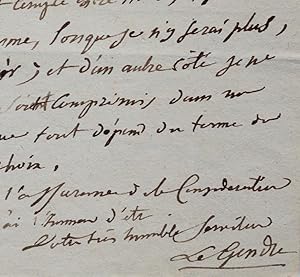 lorsque je n'y serai plus,
; et d'un autre côté je ne
comprimis, dans un
que tout dépend du terme du
choix.
l'assurance de la Consideration
ai l'honneur d'être
Votre très humble Serviteur
Le Gendre